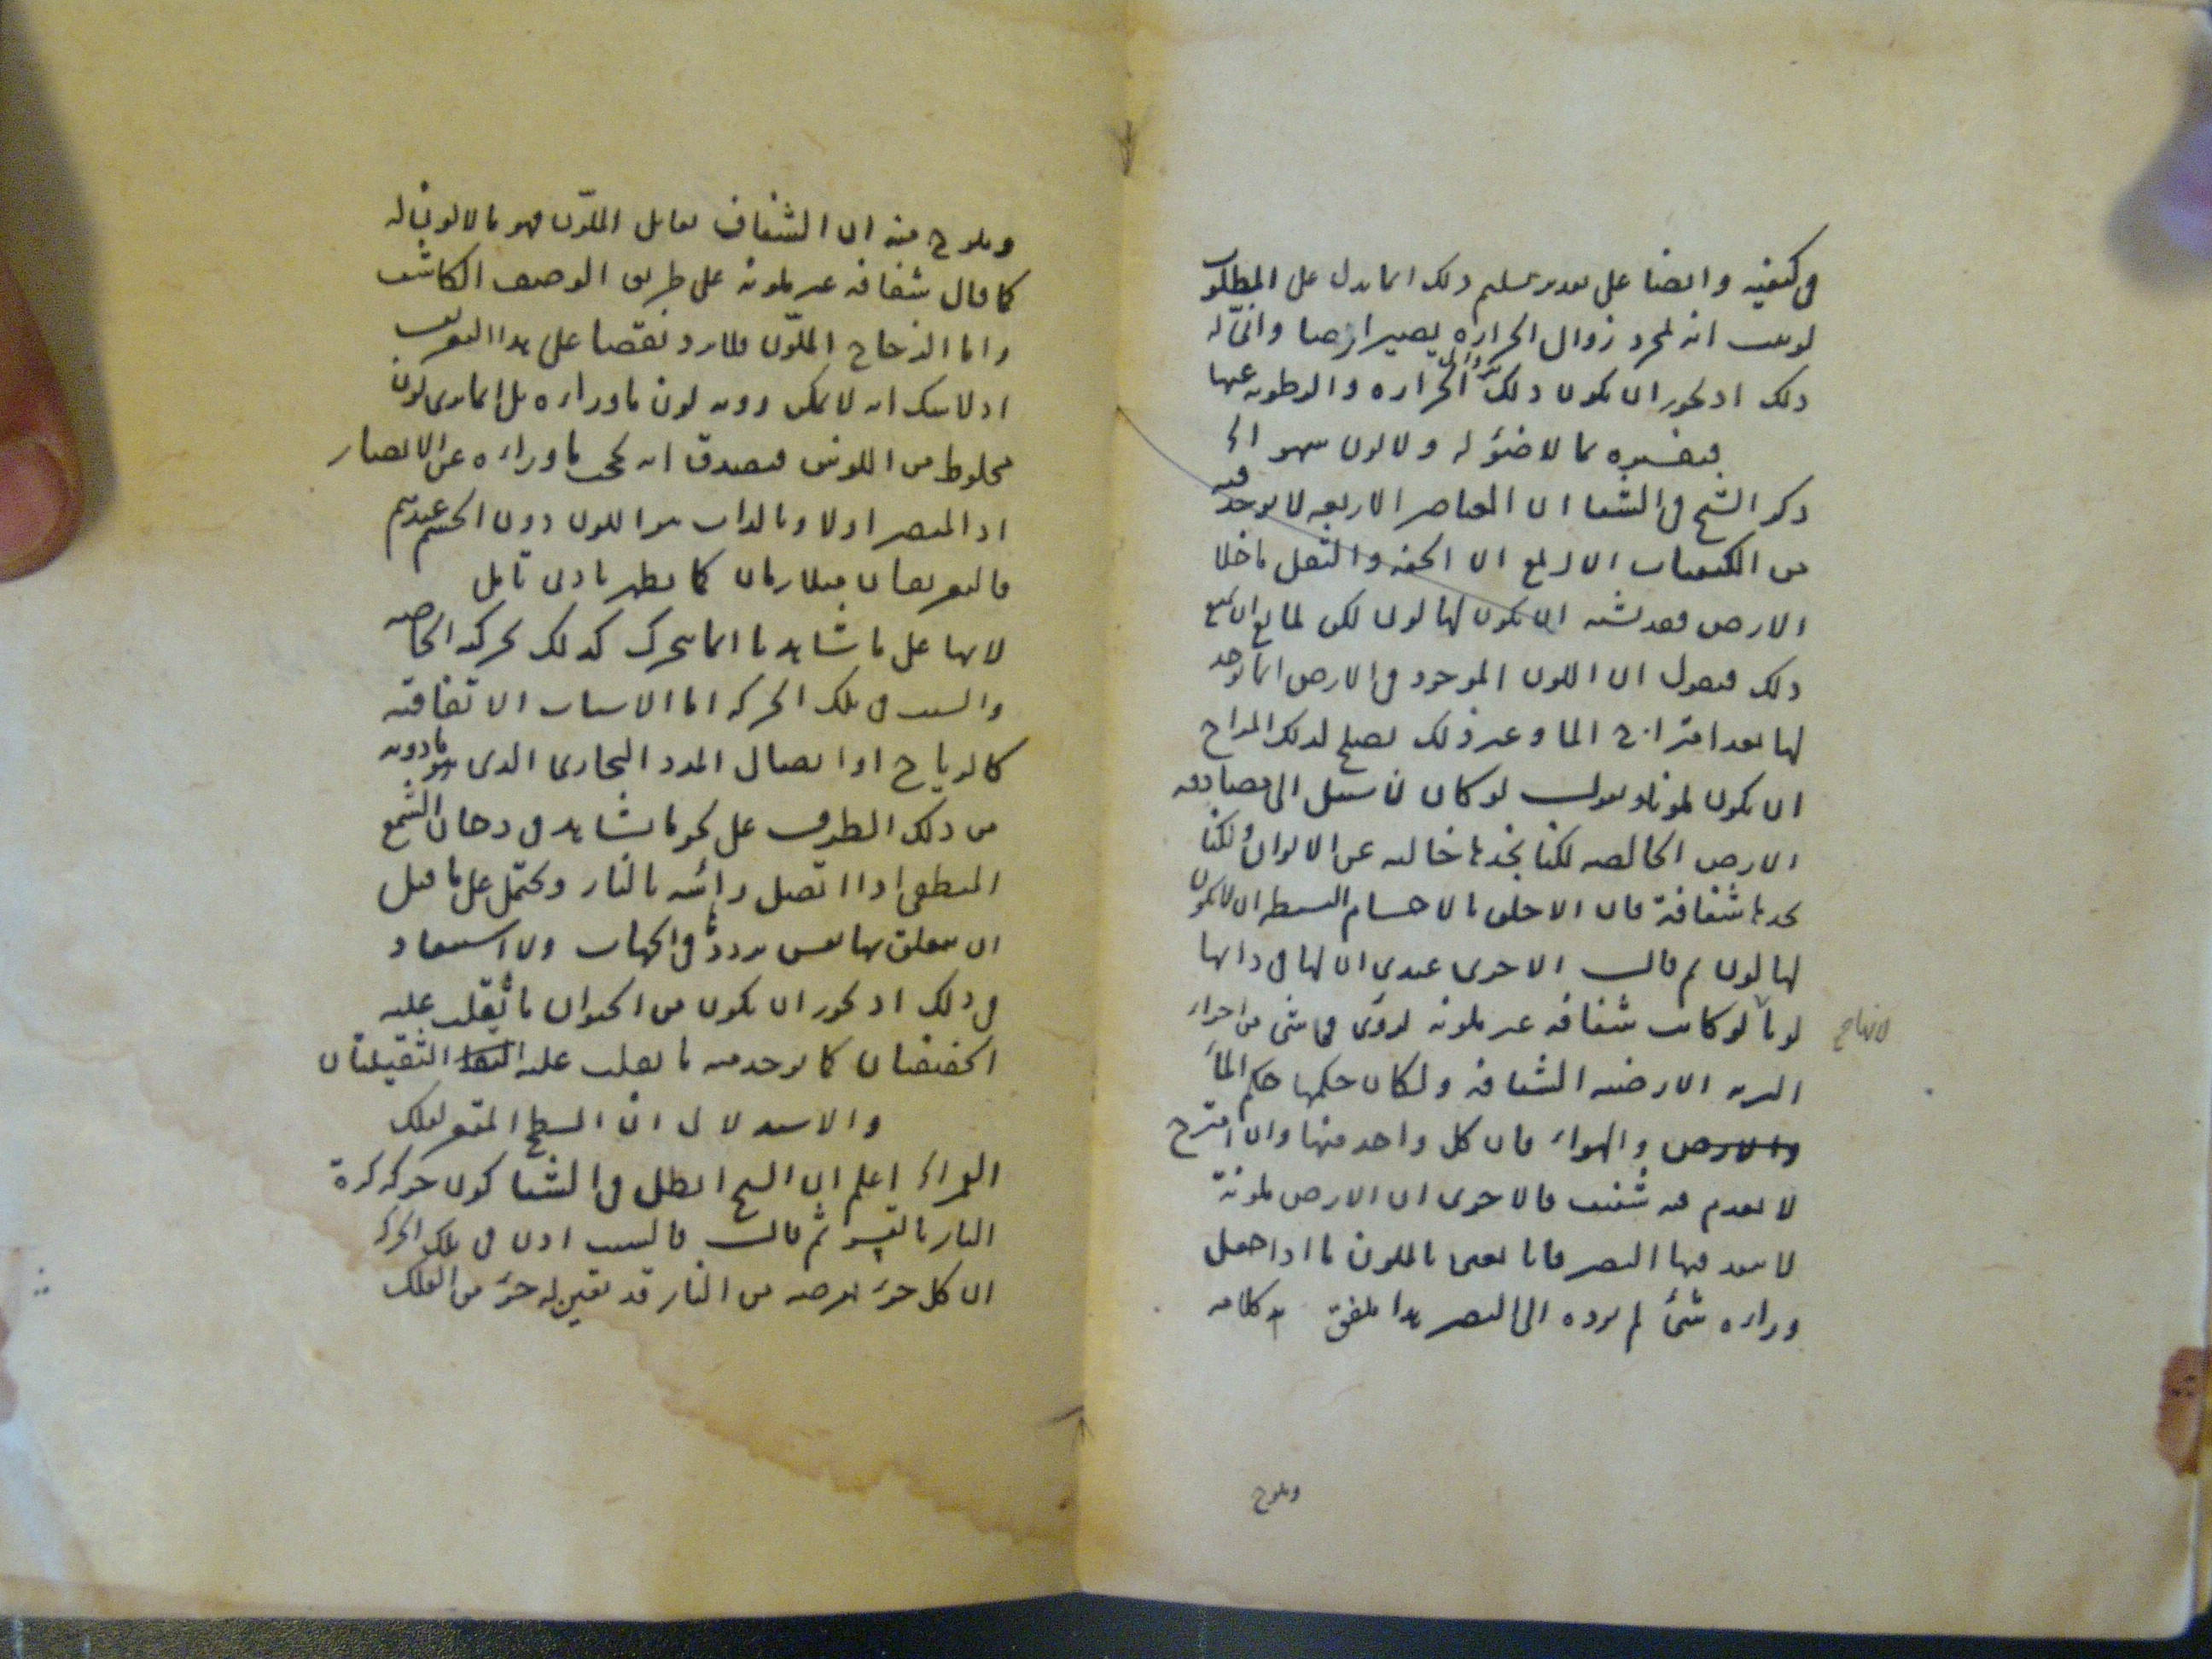 في كيفيه وايضا على تقدير تسليم ذلك انما يدل على المطلوب
لو ثبت انه لمجرد زوال الحراره يصير ارضا وانّى له
ذلك اذ يجوز ان يكون ذلك لزوال الحراره والرطوبه عنها
فتفسيره بما لا ضوء له ولا لون سهو الخ
ذكر الشيخ في الشفا ان العناصر الاربعه لا يوجد فيه
من الكيفيات الاربع الا الخفه والثقل ما خلا
الارض فقد يشبه ان يكون لها لون لكن لمانع ان يمنع
ذلك فيقول ان اللون الموجود في الارض انما يوجد
لها بعد امتزاج الما وغير ذلك يصلح لذلك المزاج
ان يكون ملونا ويقول لو كان لنا سبيل الى مصادفه
الارض الخالصه لكنا نجدها خاليه عن الالوان ولكنا
نجدها شفافة فان الاخلق بالاجسام البسيطه ان لا يكون
لها لون ثم قال الاحرى عندي ان لها في ذاتها
لونا لو كانت شفافه غير ملونه لروى في شئ من اجزاء
البريه الارضيه الشفافه ولكان حكمها حكم الماء
والارض والهواء فان كل واحد منها وان امتزج
لا يعدم فيه شفيف فالاحرى ان الارض ملونة
لا ينفذ فيها البصر فانا نعنى بالملون ما اذا جعل
وراءه شئ لم يوده الى البصر هذا ملفق من كلامه
ويلوح
ويلوح منه ان الشفاف يقابل الملوّن فهو ما لا لون له
كما قال شفافه غير ملونه على طريق الوصف الكاشف
واما الزجاج الملوّن فلا يرد نقضا على هذا التعريف
اذ لا شك انه لا يمكن رويه لون ما وراءه بل انما يرى لون
مخلوط من اللونين فيصدق انه يحجب ما وراءه عن الابصار
اذ المبصر اولا وبالذات هو اللون دون الجسم عندهم
فالتعريفان متلازمان كما يظهر بادنى تامل
لانها على ما شاهدنا انما تتحرك كذلك بحركه الخاصه
والسبب في تلك الحركه اما الاسباب الاتفاقيه
كالرياح او اتصال المدد البخارى الذى هو مادونه
من ذلك الطرف على نحو ما نشاهد في دخان الشمع
المنطفى اذا اتصل راسه بالنار ويحتمل على ما قيل
ان يتعلق بها نفس يرددها في الجهات ولا استبعاد
في ذلك اذ يجوز ان يكون من الحيوان ما يغلب عليه
الخفيفتان كما يوجد منه ما يغلب عليه الثقيلتان
والاستدلال ان السطح المقعر لفلك
القمر الخ اعلم ان الشيخ ابطل في الشفا كون حركه كرة
النار بالقسر ثم قال فالسبب اذن في تلك الحركه
ان كل جزء نفرضه من النار قد تعين له جزء من الفلك